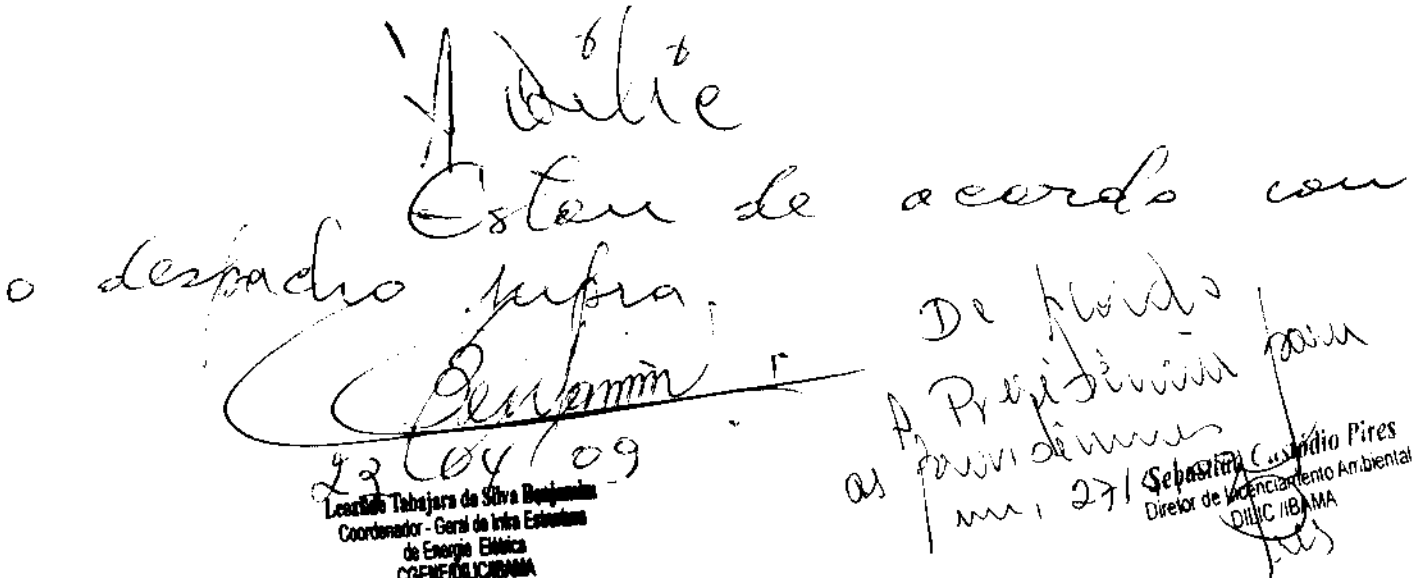 À Dilic
Estou de acordo com
o despacho supra.
Benjamin
23/04/09
Leandro Tabajara da Silva Benjamin
Coordenador - Geral de Infra Estrutura
de Energia Elétrica
CGENE/DILIC/IBAMA
De acordo
À Presidência para
as providências
em, 27/
Sebastião Custódio Pires
Diretor de Licenciamento Ambiental
DILIC/IBAMA